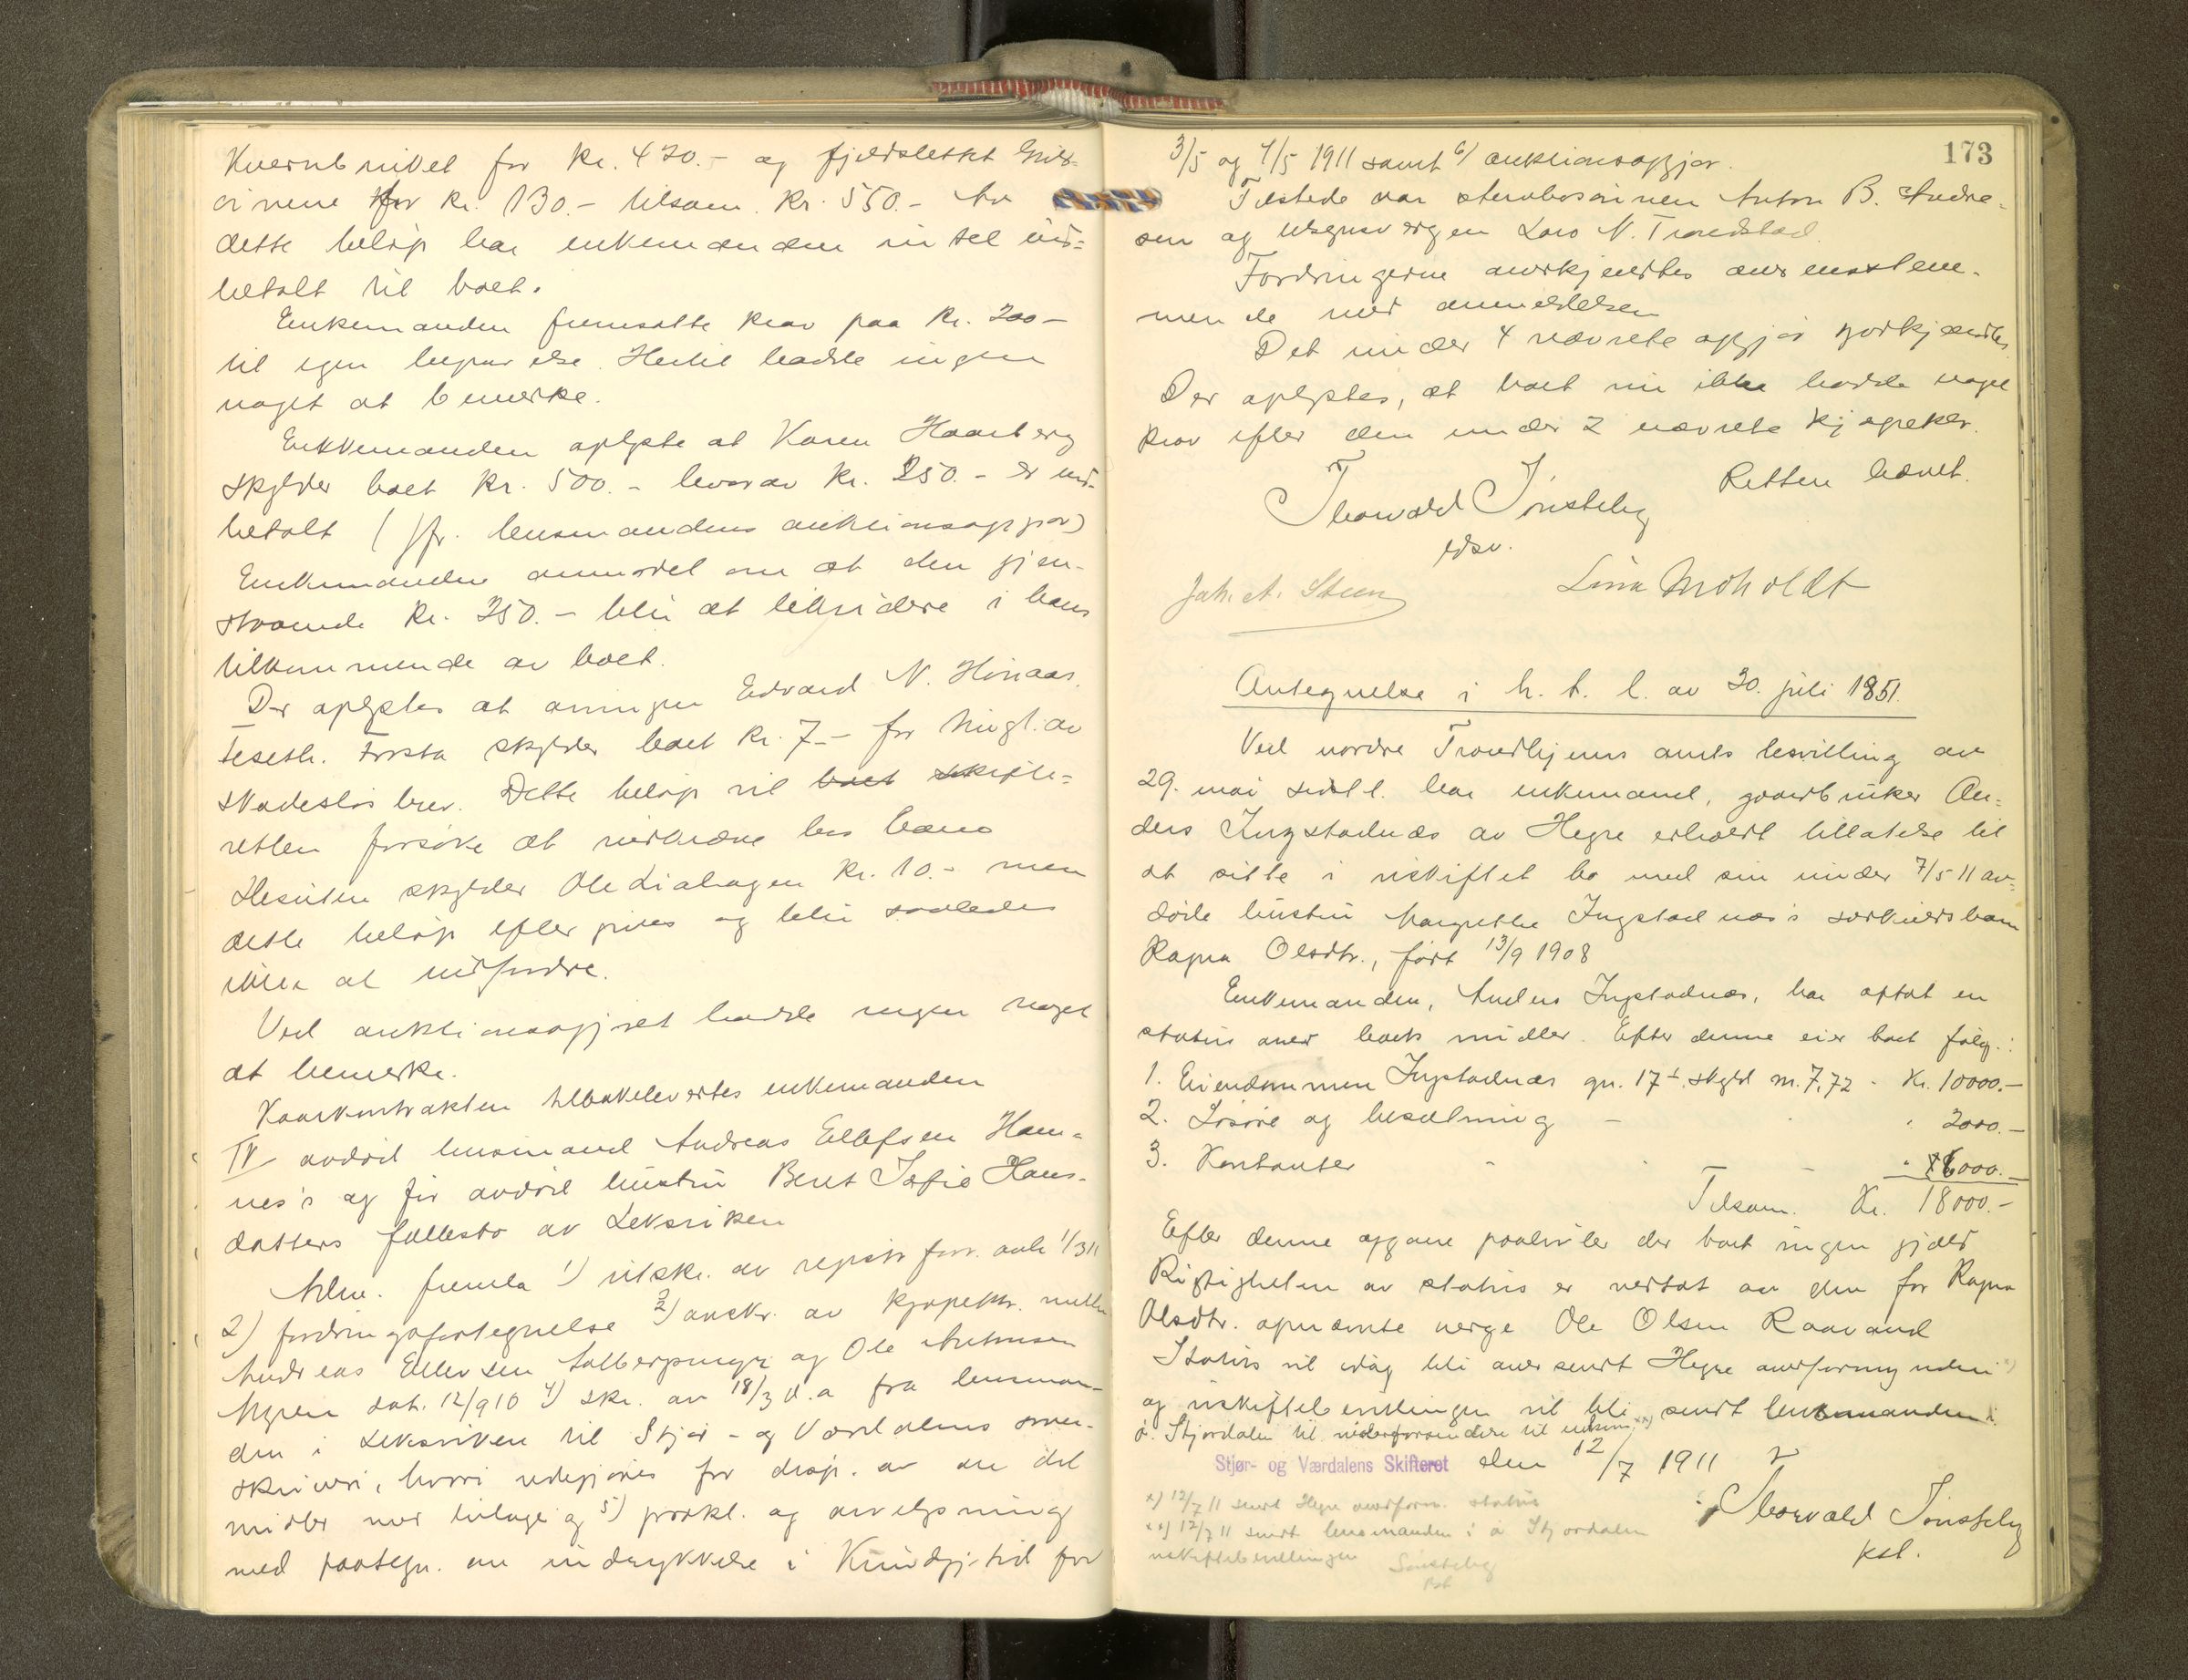 Kvernbruket for kr. 420.- og fjeldslettet
for kr. 130.- tilsam. kr. 550.- Av
dette beløp har enkemanden intet ind=
betalt til boet.
Enkemanden fremsatte krav paa kr. 200-
til egen begravelse. Hertil hadde ingen
noget at bemerke.
Enkemanden oplyste at Karen Haarberg
skylder boet kr. 500.- hvorav kr. 250.- er ind-
betalt (jfr. lensmandens auktionsopgjør)
Enkemanden anmodet om at den gjen-
staaende kr. 250.- blir at likvidere i hans
tilkommende av boet.
Der oplystes at arvingen Edvard N. Hunaas.
Teseth. Frosta skylder boet kr. 7.- for tingl. av
skadesløsbrev. Dette beløp vil boet skifte=
retten forsøke at indkræve hos ham
Desuten skylder Ole Liahagen kr. 10.- men
dette beløp eftergives og blir saaledes
ikke at indfordre.
Ved auktionsopgjøret hadde ingen noget
at bemerke.
Kaarkontrakten tilbakelevertes enkemanden
IV avdød husmand Andreas Ellefsen Ham=
nes's og før avdøde hustru Berit Sofie Hans-
datters fællesbo av Leksviken
Adm. fremla 1) utskr. av registr. forr. avh. 1/3 11
2) fordringsfortegnelse 3) avskr. av kjøpektr. mellem
Andreas Ellevsen Salbergmyr og Ole Antonsen
Myren dat. 12/9 10 4) skr. av 18/3 d.a fra lensman-
den i Leksviken til Stjør- og Værdalens soren-
skriveri, hvori redegjøres for disp. av en del
midler med bilage og 5) prokl. og avlysning
med paategn. om indrykkelse i Kundgj.tid for
173
3/5 og 4/5 1911 samt 6) auktionsopgjør.
Tilstede var stervbosønnen Anton B. Andre-
sen og Lars N. Trondstad.
Fordringerne anerkjendtes overensstem-
mende med anmeldelsen
Det under 4 nævnte opgjør godkjendtes
Der oplystes, at boet nu ikke hadde noget
krav efter den under 2 nævnte kjøpektr.
Retten hævet.
Thorvald Tønseth
edsv.
Joh. A. Steen
Lina Moholdt
Antegnelse i h. t. l. av 30. juli 1851.
Ved nordre Trondhjems amts bevilling av
29. mai sidstl. har enkemand, gaardbruker An=
ders Ingstadnæs av Hegre erholdt tillatelse til
at sitte i uskiftet bo med sin under 7/5 11 av=
døde hustru Margrethe Ingstadnæs's særkuldsbarn
Ragna Olsdtr., født 13/9 1908
Enkemanden, Anders Ingstadnæs, har optat en
status over boets midler. Efter denne eier boet følg.:
1. Eiendommen Ingstadnæs gn. 17 skyld m. 7,72 - Kr. 10000.-
2. Løsøre og besætning - " 2000.-
3. Kontanter - - - " 6000.-
Tilsam. Kr. 18000.-
Efter denne opgave paahviler der boet ingen gjæld
Rigtigheten av status er vedtat av den for Ragna
Olsdtr. opnævnte verge Ole Olsen Raavand
Status vil idag bli oversendt Hegre overformynderi x)
og uskiftebevillingen vil bli sendt lensmanden i
ø. Stjørdalen til viderforsendelse til enkem. xx)
Stjør- og Værdalens Skifteret den 12/7 1911
Thorvald Tønseth
kst.
x) 12/7 11 sendt Hegre overform. status
xx) 12/7 11 sendt lensmanden i ø Stjørdalen
uskiftebevillingen